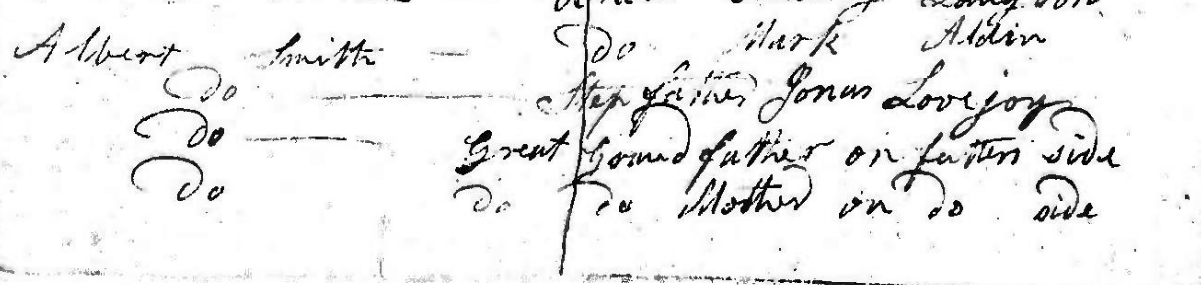 Albert Smith — Do Mark Aldin
Do — Step father Jonas Lovejoy
Do — Great Grand father on fathers side
Do Do Do Mother on Do side